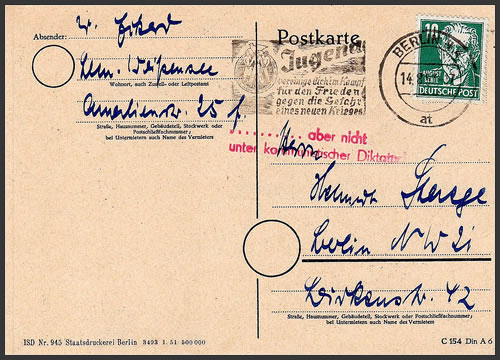 Absender:
Wohnort, auch Zustell- oder Leitpostamt
25
Straße, Hausnummer, Gebäudeteil, Stockwerk oder
Postschließfachnummer;
bei Untermietern auch Name des Vermieters
Postkarte
Jugend
vereinige dich im Kampf
für den Frieden
gegen die Gefahr
eines neuen Krieges
BERLIN
14.
at
10
AUGUST
BEBEL
DEUTSCHE POST
.......... aber nicht
unter kommunistischer Diktatur
Herrn
Helmut
Berlin NW 21
42
Straße, Hausnummer, Gebäudeteil, Stockwerk oder Postschließfachnummer;
bei Untermietern auch Name des Vermieters
ISD Nr. 945 Staatsdruckerei Berlin 3493 1. 51 500 000
C 154 Din A 6